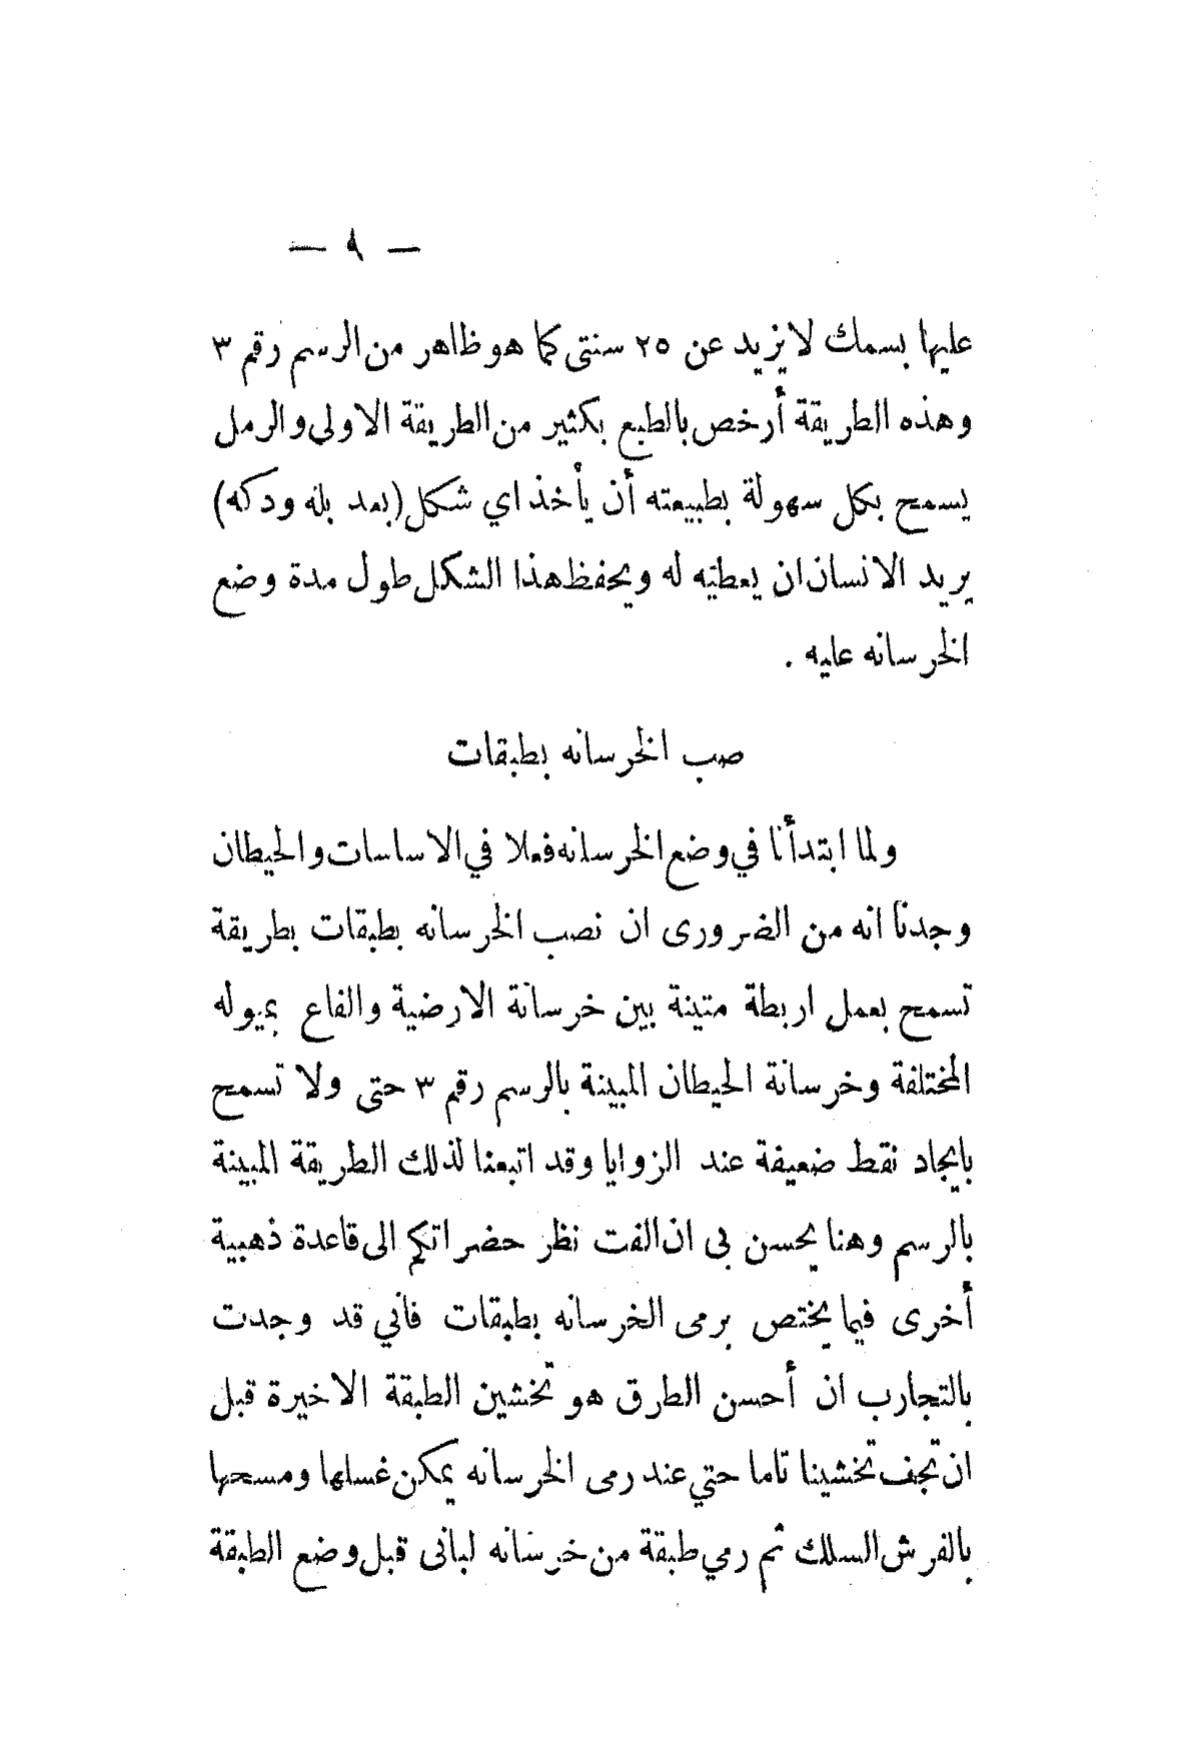 — ٩ —
عليها بسمك لا يزيد عن ٢٥ سنتى كما هو ظاهر من الرسم رقم ٣
وهذه الطريقة أرخص بالطبع بكثير من الطريقة الاولى والرمل
يسمح بكل سهولة بطبيعته أن يأخذ اي شكل (بعد بله ودكه)
يريد الانسان ان يعطيه له ويحفظ هذا الشكل طول مدة وضع
الخرسانه عليه .
صب الخرسانه بطبقات
ولما ابتدأنا في وضع الخرسانه فعلا في الاساسات والحيطان
وجدنا انه من الضرورى ان نصب الخرسانه بطبقات بطريقة
تسمح بعمل اربطة متينة بين خرسانة الارضية والقاع بميوله
المختلفة وخرسانة الحيطان المبينة بالرسم رقم ٣ حتى ولا تسمح
بايجاد نقط ضعيفة عند الزوايا وقد اتبعنا لذلك الطريقة المبينة
بالرسم وهنا يحسن بى ان الفت نظر حضراتكم الى قاعدة ذهبية
أخرى فيما يختص برمى الخرسانه بطبقات فاني قد وجدت
بالتجارب ان أحسن الطرق هو تخشين الطبقة الاخيرة قبل
ان تجف تخشينا تاما حتي عند رمى الخرسانه يمكن غسلها ومسحها
بالفرش السلك ثم رمي طبقة من خرسانه لبانى قبل وضع الطبقة